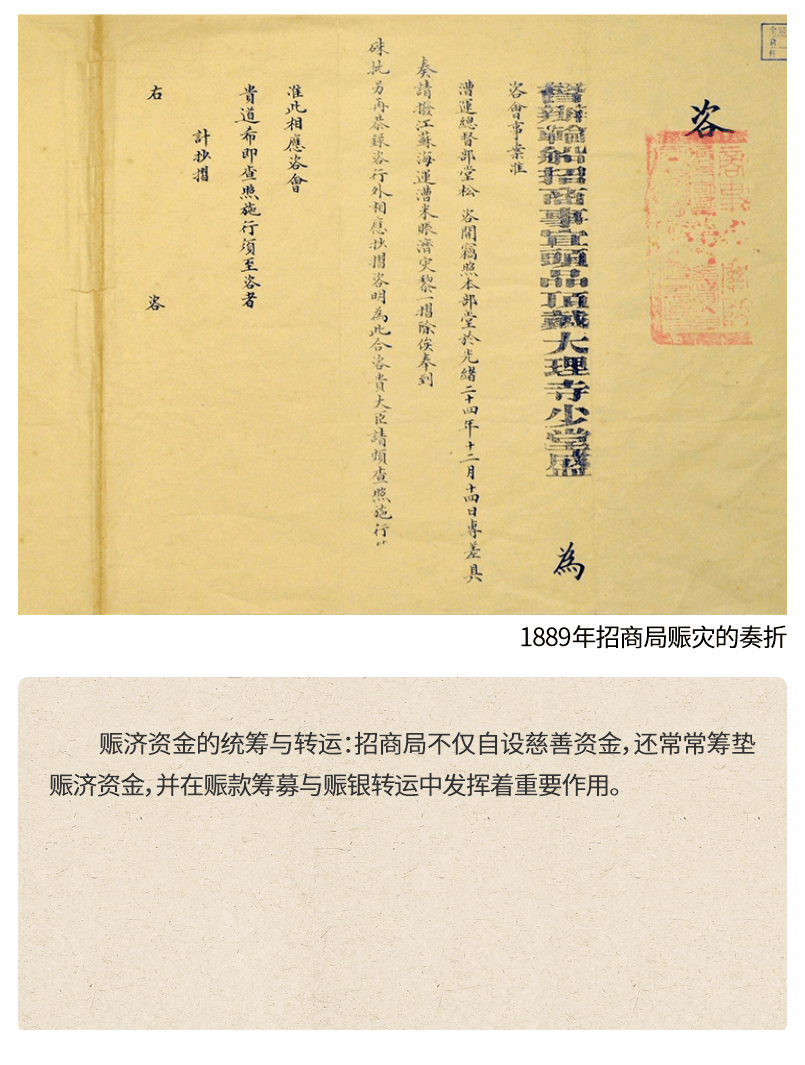 咨
督辦輪船招商事宜頭品頂戴大理寺少堂盛　為
咨會事案准
漕運總督部堂松　咨開竊照本部堂於光緒二十四年十二月十四日專差具
奏請撥江蘇海運漕米賑濟灾黎一摺除俟奉到
硃批另再恭錄咨行外相應抄摺咨明為此合咨貴大臣請煩查照施行
准此相應咨會
貴道希即查照施行須至咨者
計抄摺
右　咨
1889年招商局赈灾的奏折
赈济资金的统筹与转运：招商局不仅自设慈善资金，还常常筹垫
赈济资金，并在赈款筹募与赈银转运中发挥着重要作用。